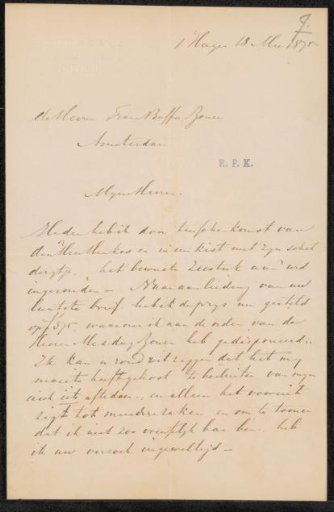 7.
's Hage 18 Mei 1875
de Heeren Frans Buffa & Zonen
Amsterdam
R. P. K.
Mijne Heeren
Heden heb ik door tusschenkomst van
den Heer in een kist met zyn schil
derytje het bewuste Zeestuk aan u
ingezonden – Naar aanleiding van uw
laatste brief heb ik de prys gesteld
op f375, waarover ik aan de order van de
Heeren Mesdag & Zonen heb gedisponeerd –
Ik kan u ronduit zeggen dat het my
moeite heeft gekost te besluiten van myn
eisch af te doen, en alleen het vooruit
zigt tot meerdere zaken en om te toonen
dat ik niet zoo ben heb
ik uw verzoek ingewilligd –